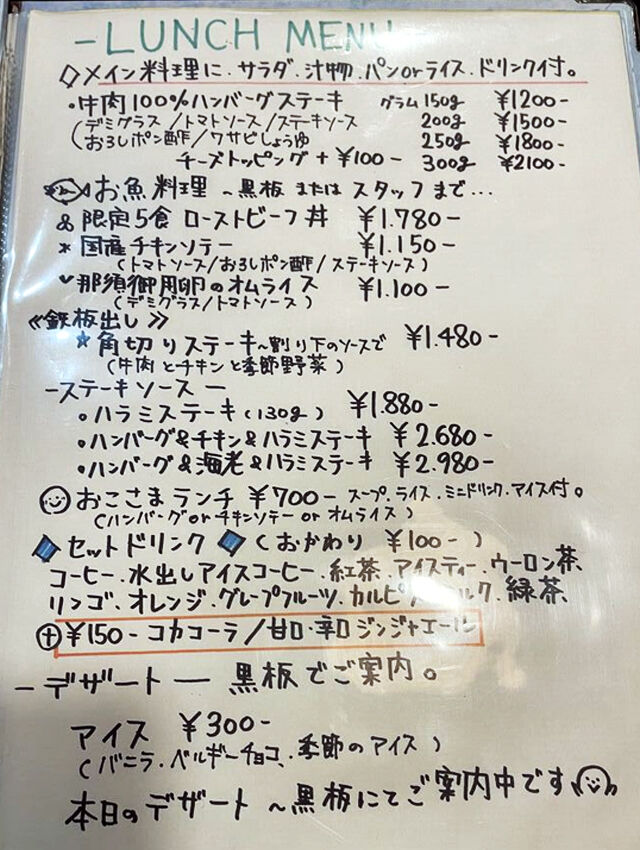 -LUNCH MENU-
◇メイン料理に、サラダ、汁物、パンorライス、ドリンク付。
・牛肉100%ハンバーグステーキ グラム 150g ¥1200-
(デミグラス/トマトソース/ステーキソース 200g ¥1500-
(おろしポン酢/ワサビしょうゆ 250g ¥1800-
チーズトッピング+¥100- 300g ¥2100-
お魚料理~黒板またはスタッフまで…
&限定5食 ローストビーフ丼 ¥1.780-
*国産チキンソテー ¥1.150-
(トマトソース/おろしポン酢/ステーキソース)
那須御用卵のオムライス ¥1.100-
(デミグラス/トマトソース)
≪鉄板出し≫
☆角切りステーキ~割り下のソースで ¥1.480-
(牛肉とチキンと季節野菜)
-ステーキソース-
。ハラミステーキ(130g) ¥1.880-
。ハンバーグ&チキン&ハラミステーキ ¥2.680-
。ハンバーグ&海老&ハラミステーキ ¥2.980-
おこさまランチ ¥700- スープ、ライス、ミニドリンク、アイス付。
(ハンバーグorチキンソテーorオムライス)
◆セットドリンク◆(おかわり ¥100-)
コーヒー、水出しアイスコーヒー、紅茶、アイスティー、ウーロン茶、
リンゴ、オレンジ、グレープフルーツ、カルピス、ミルク、緑茶、
⊕¥150- コカコーラ/甘口・辛口ジンジャエール
-デザート- 黒板でご案内。
アイス ¥300-
(バニラ、ベルギーチョコ、季節のアイス)
本日のデザート~黒板にてご案内中です